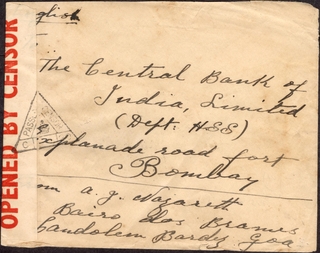 OPENED BY CENSOR
English
The Central Bank of
India, Limited
(Dept: HSS)
Esplanade road fort
Bombay
a. g. Nazareth
Bairo dos Brames
Candolim Bardez Goa